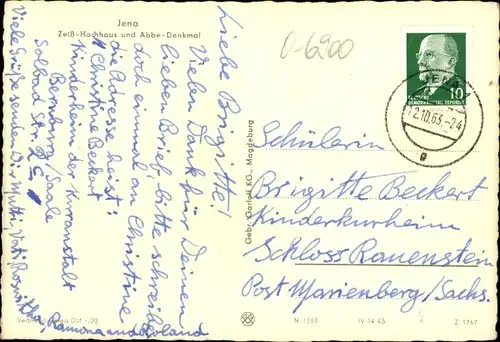 Jena
Zeiß-Hochhaus und Abbe-Denkmal
0-6900
Liebe Brigitte!
Vielen Dank für Deinen
lieben Brief, bitte schreibe
doch einmal an Christine
die Adresse heißt:
Christine Beckert
Kinderheim der Kuranstalt
Bernburg/Saale
Solbad Str. 2
Viele Grüße senden Dir Mutti, Vati, Roswitha,
Ramona und Roland
Gebr. Garloff KG., Magdeburg
10
DEUTSCHE
DEMOKRATISCHE REPUBLIK
JENA 1
2.10.63.-24
Schülerin
Brigitte Beckert
Kinderkurheim
Schloss Rauenstein
Post Marienberg/Sachs.
N 1767
IV-14-45
Z 1767